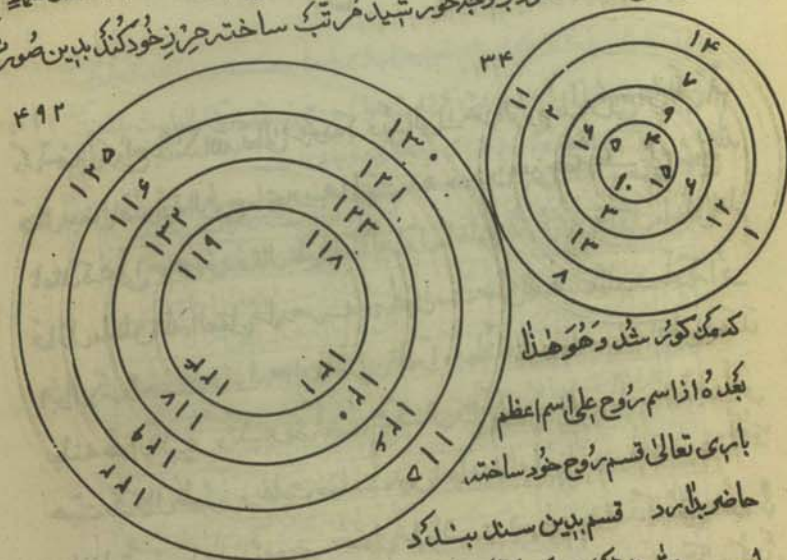 وجه خورشید مرتب ساخته حرز خود کند بدین صورت
۳۴
۱۱ ۱۴
۲ ۷
۱۶ ۹
۵ ۴
۱۰ ۱۵
۳ ۶
۱۳ ۱۲
۸ ۱
۴۹۲
۱۲۵ ۱۳۰
۱۱۶ ۱۲۱
۱۳۲ ۱۲۳
۱۱۹ ۱۱۸
۱۲۴ ۱۳۱
۱۱۷ ۱۲۰
۱۲۹ ۱۲۶
۱۲۲ ۱۱۵
که مذکور شد وَهُوَ هٰذا
بعدهٔ از اسم رُوح علی اسم اعظم
باری تعالیٰ قسم رُوح خود ساخته
حاضر بدارد قسم بدین سند بندد